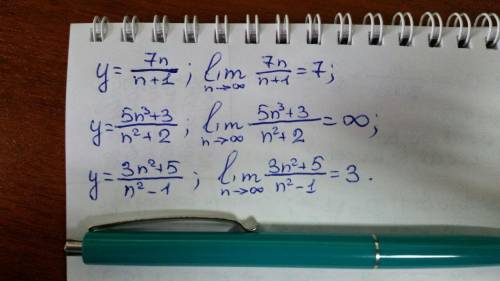 y = 7n/(n+1) ; lim n→∞ 7n/(n+1) = 7;
y = (5n³+3)/(n²+2) ; lim n→∞ (5n³+3)/(n²+2) = ∞;
y = (3n²+5)/(n²-1) ; lim n→∞ (3n²+5)/(n²-1) = 3.